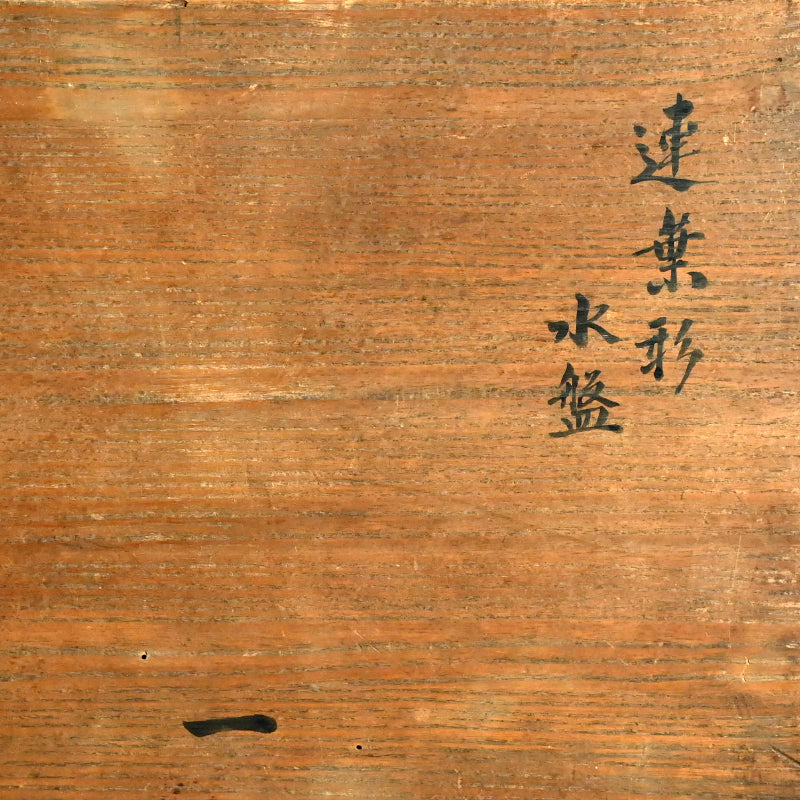 連葉形
水盤
一